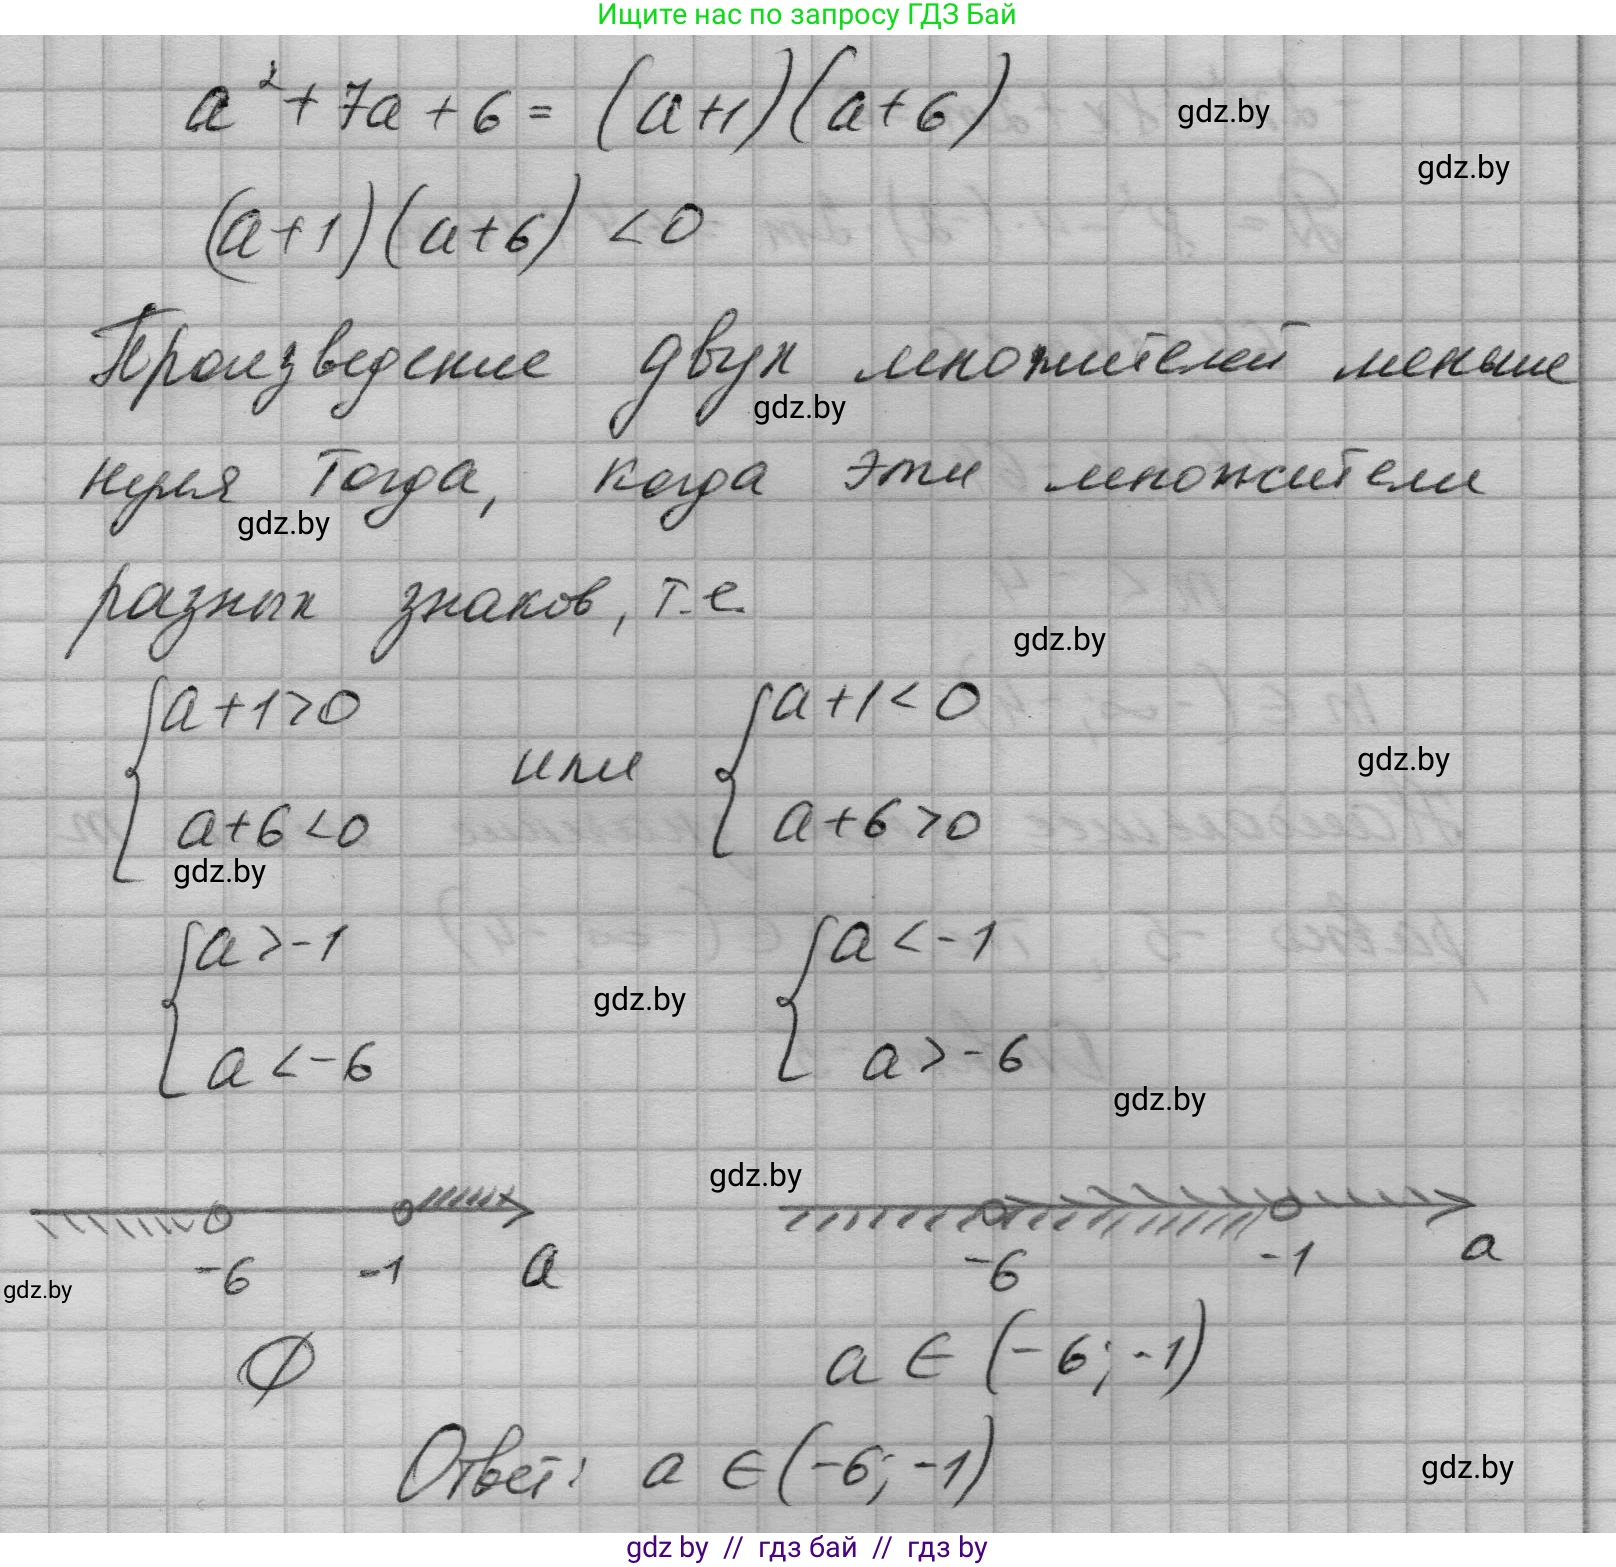 Ищите нас по запросу ГДЗ Бай
a² + 7a + 6 = (a+1)(a+6)
gdz.by
gdz.by
(a+1)(a+6) < 0
Произведение двух множителей меньше
gdz.by
нуля тогда, когда эти множители
gdz.by
разных знаков, т.е.
gdz.by
{a+1>0 или {a+1<0
gdz.by
a+6<0 a+6>0
gdz.by
{a>-1 {a<-1
gdz.by
a<-6 a>-6
gdz.by
gdz.by
-6 -1 a -6 -1 a
gdz.by
∅ a ∈ (-6; -1)
Ответ: a ∈ (-6; -1)
gdz.by
gdz by // гдз бай // гдз by